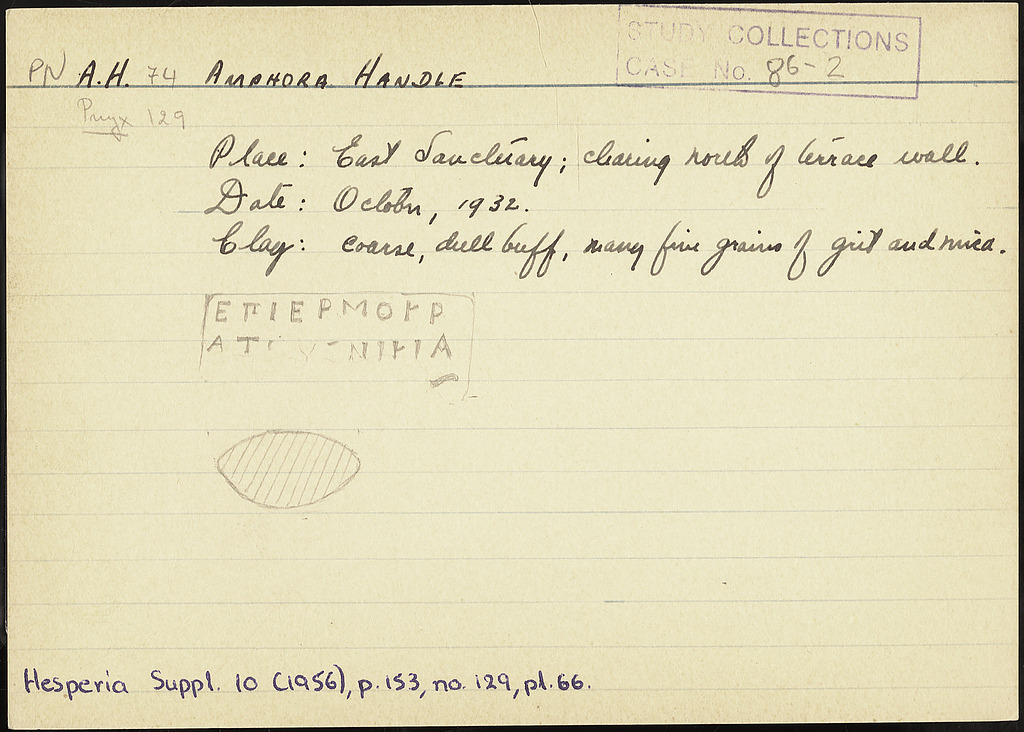 STUDY COLLECTIONS
CASE No. 86-2
PN A.H. 74 AMPHORA HANDLE
Pnyx 129
Place: East Sanctuary; clearing north of terrace wall.
Date: October, 1932.
Clay: coarse, dull buff, many fine grains of grit and mica.
ΕΠΙΕΡΜΟΚΡ
ΑΤ
Hesperia Suppl. 10 (1956), p. 153, no. 129, pl. 66.